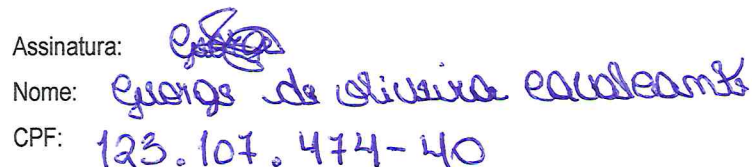 Assinatura: George
Nome: George de oliveira cavalcante
CPF: 123.107.474-40